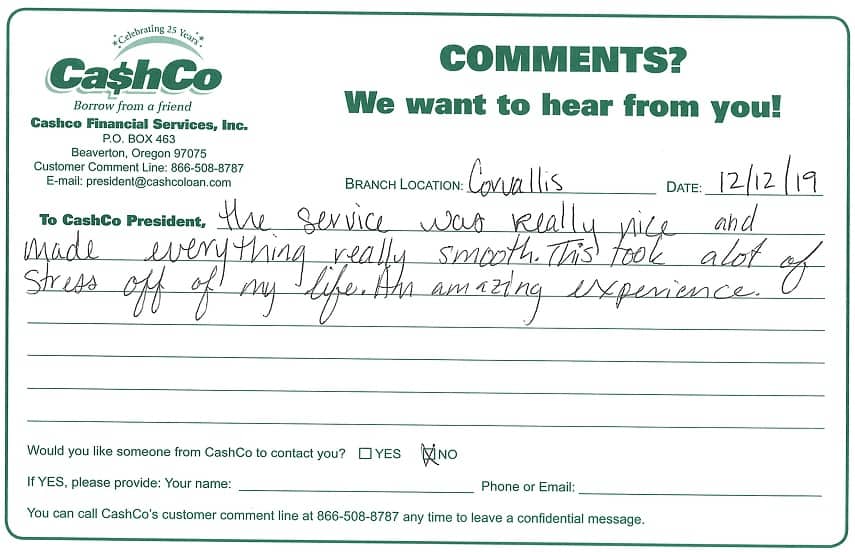 Celebrating 25 Years
Ca$hCo
Borrow from a friend
Cashco Financial Services, Inc.
P.O. BOX 463
Beaverton, Oregon 97075
Customer Comment Line: 866-508-8787
E-mail: president@cashcoloan.com
COMMENTS?
We want to hear from you!
BRANCH LOCATION: Corvallis DATE: 12/12/19
To CashCo President, the service was really nice and
made everything really smooth. This took alot of
stress off of my life. An amazing experience.
Would you like someone from CashCo to contact you? YES NO
If YES, please provide: Your name: Phone or Email:
You can call CashCo's customer comment line at 866-508-8787 any time to leave a confidential message.